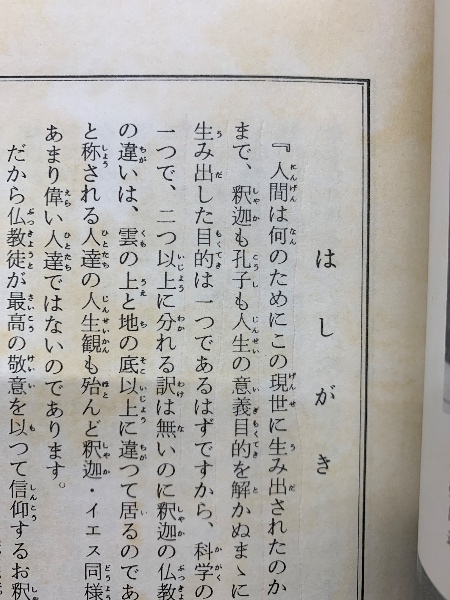 はしがき
『人間は何のためにこの現世に生み出されたのか
まで、釈迦も孔子も人生の意義目的を解かぬまゝに
生み出した目的は一つであるはずですから、科学の
一つで、二つ以上に分れる訳は無いのに釈迦の仏教
の違いは、雲の上と地の底以上に違つて居るのであ
と称される人達の人生観も殆んど釈迦・イエス同様
あまり偉い人達ではないのであります。
だから仏教徒が最高の敬意を以つて信仰するお釈